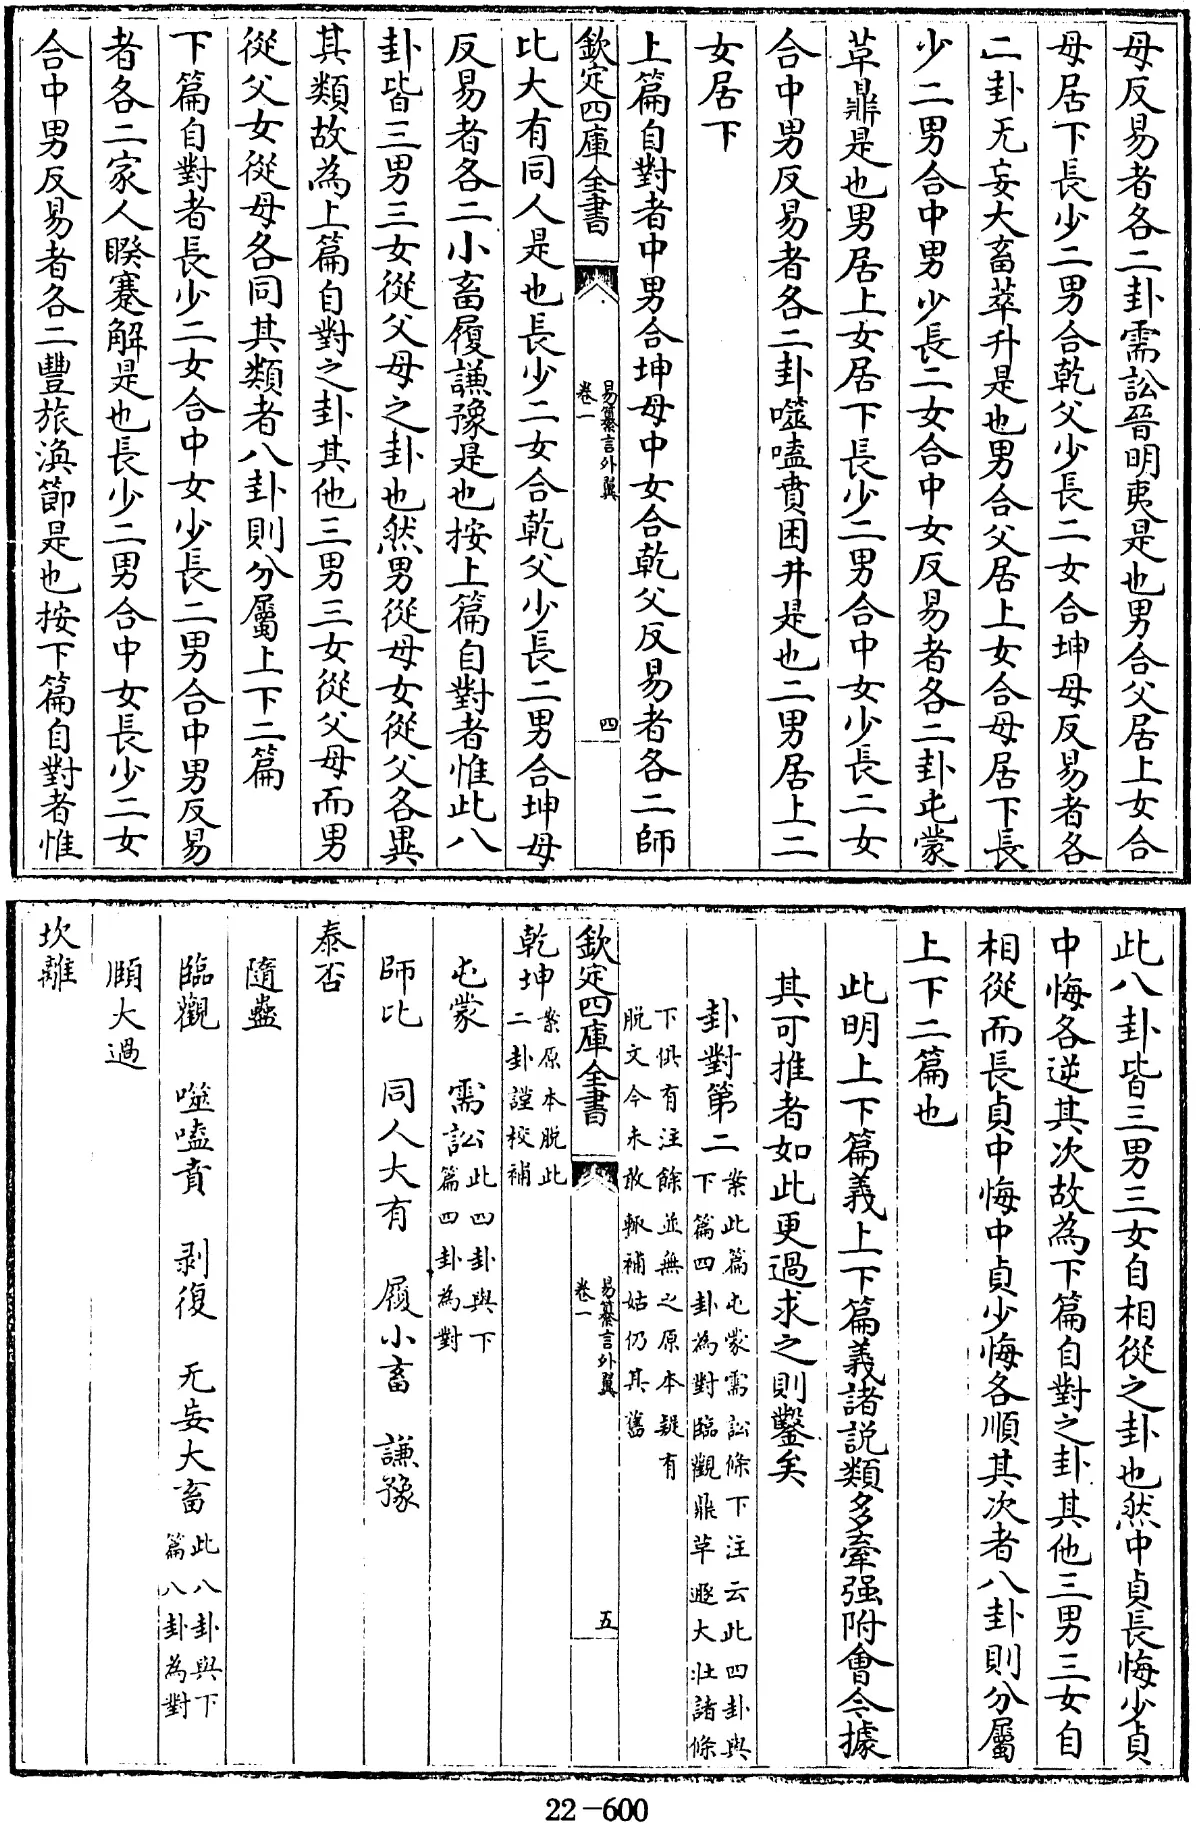 母反易者各二卦需訟晉明夷是也男合父居上女合
母居下長少二男合乾父少長二女合坤母反易者各
二卦无妄大畜萃升是也男合父居上女合母居下長
少二男合中男少長二女合中女反易者各二卦屯蒙
革鼎是也男居上女居下長少二男合中女少長二女
合中男反易者各二卦噬嗑賁困井是也二男居上二
女居下
上篇自對者中男合坤母中女合乾父反易者各二師
欽定四庫全書
易纂言外翼
卷一
四
比大有同人是也長少二女合乾父少長二男合坤母
反易者各二小畜履謙豫是也按上篇自對者惟此八
卦皆三男三女從父母之卦也然男從母女從父各異
其類故為上篇自對之卦其他三男三女從父母而男
從父女從母各同其類者八卦則分屬上下二篇
下篇自對者長少二女合中女少長二男合中男反易
者各二家人睽蹇解是也長少二男合中女長少二女
合中男反易者各二豐旅渙節是也按下篇自對者惟
此八卦皆三男三女自相從之卦也然中貞長悔少貞
中悔各逆其次故為下篇自對之卦其他三男三女自
相從而長貞中悔中貞少悔各順其次者八卦則分屬
上下二篇也
此明上下篇義上下篇義諸說類多牽强附會今據
其可推者如此更過求之則鑿矣
卦對第二
案此篇屯蒙需訟條下注云此四卦與
下篇四卦為對臨觀鼎革遯大壯諸條
下俱有注餘並無之原本疑有
脱文今未敢輒補姑仍其舊
欽定四庫全書
易纂言外翼
卷一
五
乾坤
案原本脱此
二卦謹校補
屯蒙 需訟
此四卦與下
篇四卦為對
師比 同人大有 履小畜 謙豫
泰否
隨蠱
臨觀 噬嗑賁 剥復 无妄大畜
此八卦與下
篇八卦為對
頤大過
坎離
22-600